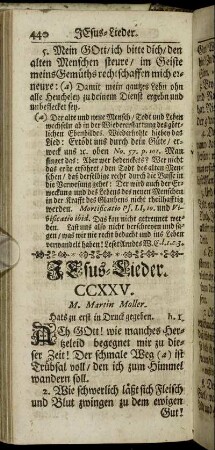 440 JEsus-Lieder.
5. Mein GOtt / ich bitte dich / den
alten Menschen steure / im Geiste
meins Gemüths rechtschaffen mich er-
neure: (a) Damit mein gantzes Lebn ohn
alle Heucheley zu deinem Dienst ergebn und
unbeflecket sey.
(a) Der alte und neue Mensch / Todt und Leben
wechseln ab in der Wiedererstattung des gött-
lichen Ebenbildes. Wiederhohle hieben das
Lied: Ertödt uns durch dein Güte / er-
weck uns 2c. oben No. 57. p. 101. Man
sinset das: Aber wer bedenckets? Wer nicht
das erste erfähret / den Todt des alten Men-
schen / bey derselbige recht durch die Busse in
die Verwesung gehet: Der wird auch der Er-
weckung und des Lebens des neuen Menschen
in der Krafft des Glaubens nicht theilhafftig
werden. Mortificatio Pf. LI, 10. und Vi-
vificatio ibid. Das kan nicht getrennet wer-
den. Last uns also nicht herschwerzen und sa-
gen / was wir nie recht bedacht und mit Lobter
verwandelt haben!
JEsus-Lieder.
CCXXV.
M. Martin Moller.
Hats zu erst in Druck gegeben. h. 1.
ACh GOtt! wie manches Her-
tzeleid begegnet mir zu die-
ser Zeit! Der schmale Weg (a) ist
Trübsal voll / den ich zum Himmel
wandern soll.
2. Wie schwerlich läßt sich Fleisch
und Blut zwingen zu dem ewigen
Gut!